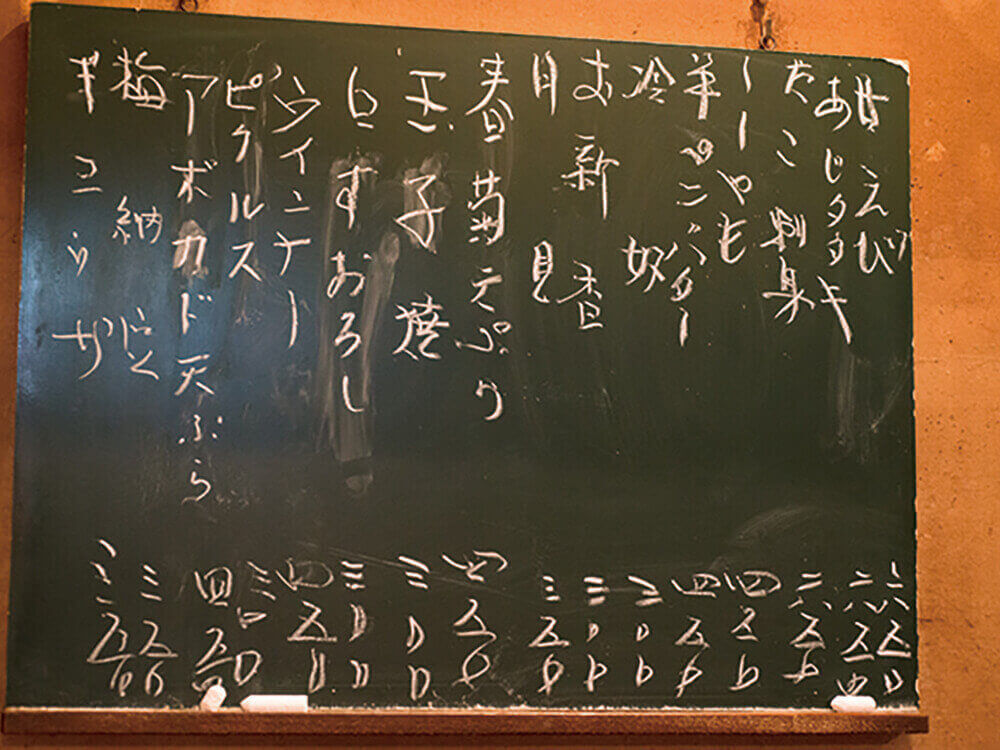 甘えび 六五〇
あじタタキ 六五〇
たこ刺身 六五〇
ししゃも 四五〇
半ペンバター 四五〇
冷奴 三〇〇
お新香 三〇〇
月見 三五〇
春菊天ぷら 四五〇
玉子焼 三〇〇
しらすおろし 三〇〇
ウインナー 四五〇
ピクルス 三〇〇
アボカド天ぷら 四五〇
梅納豆 三五〇
ギョウザ 三五〇